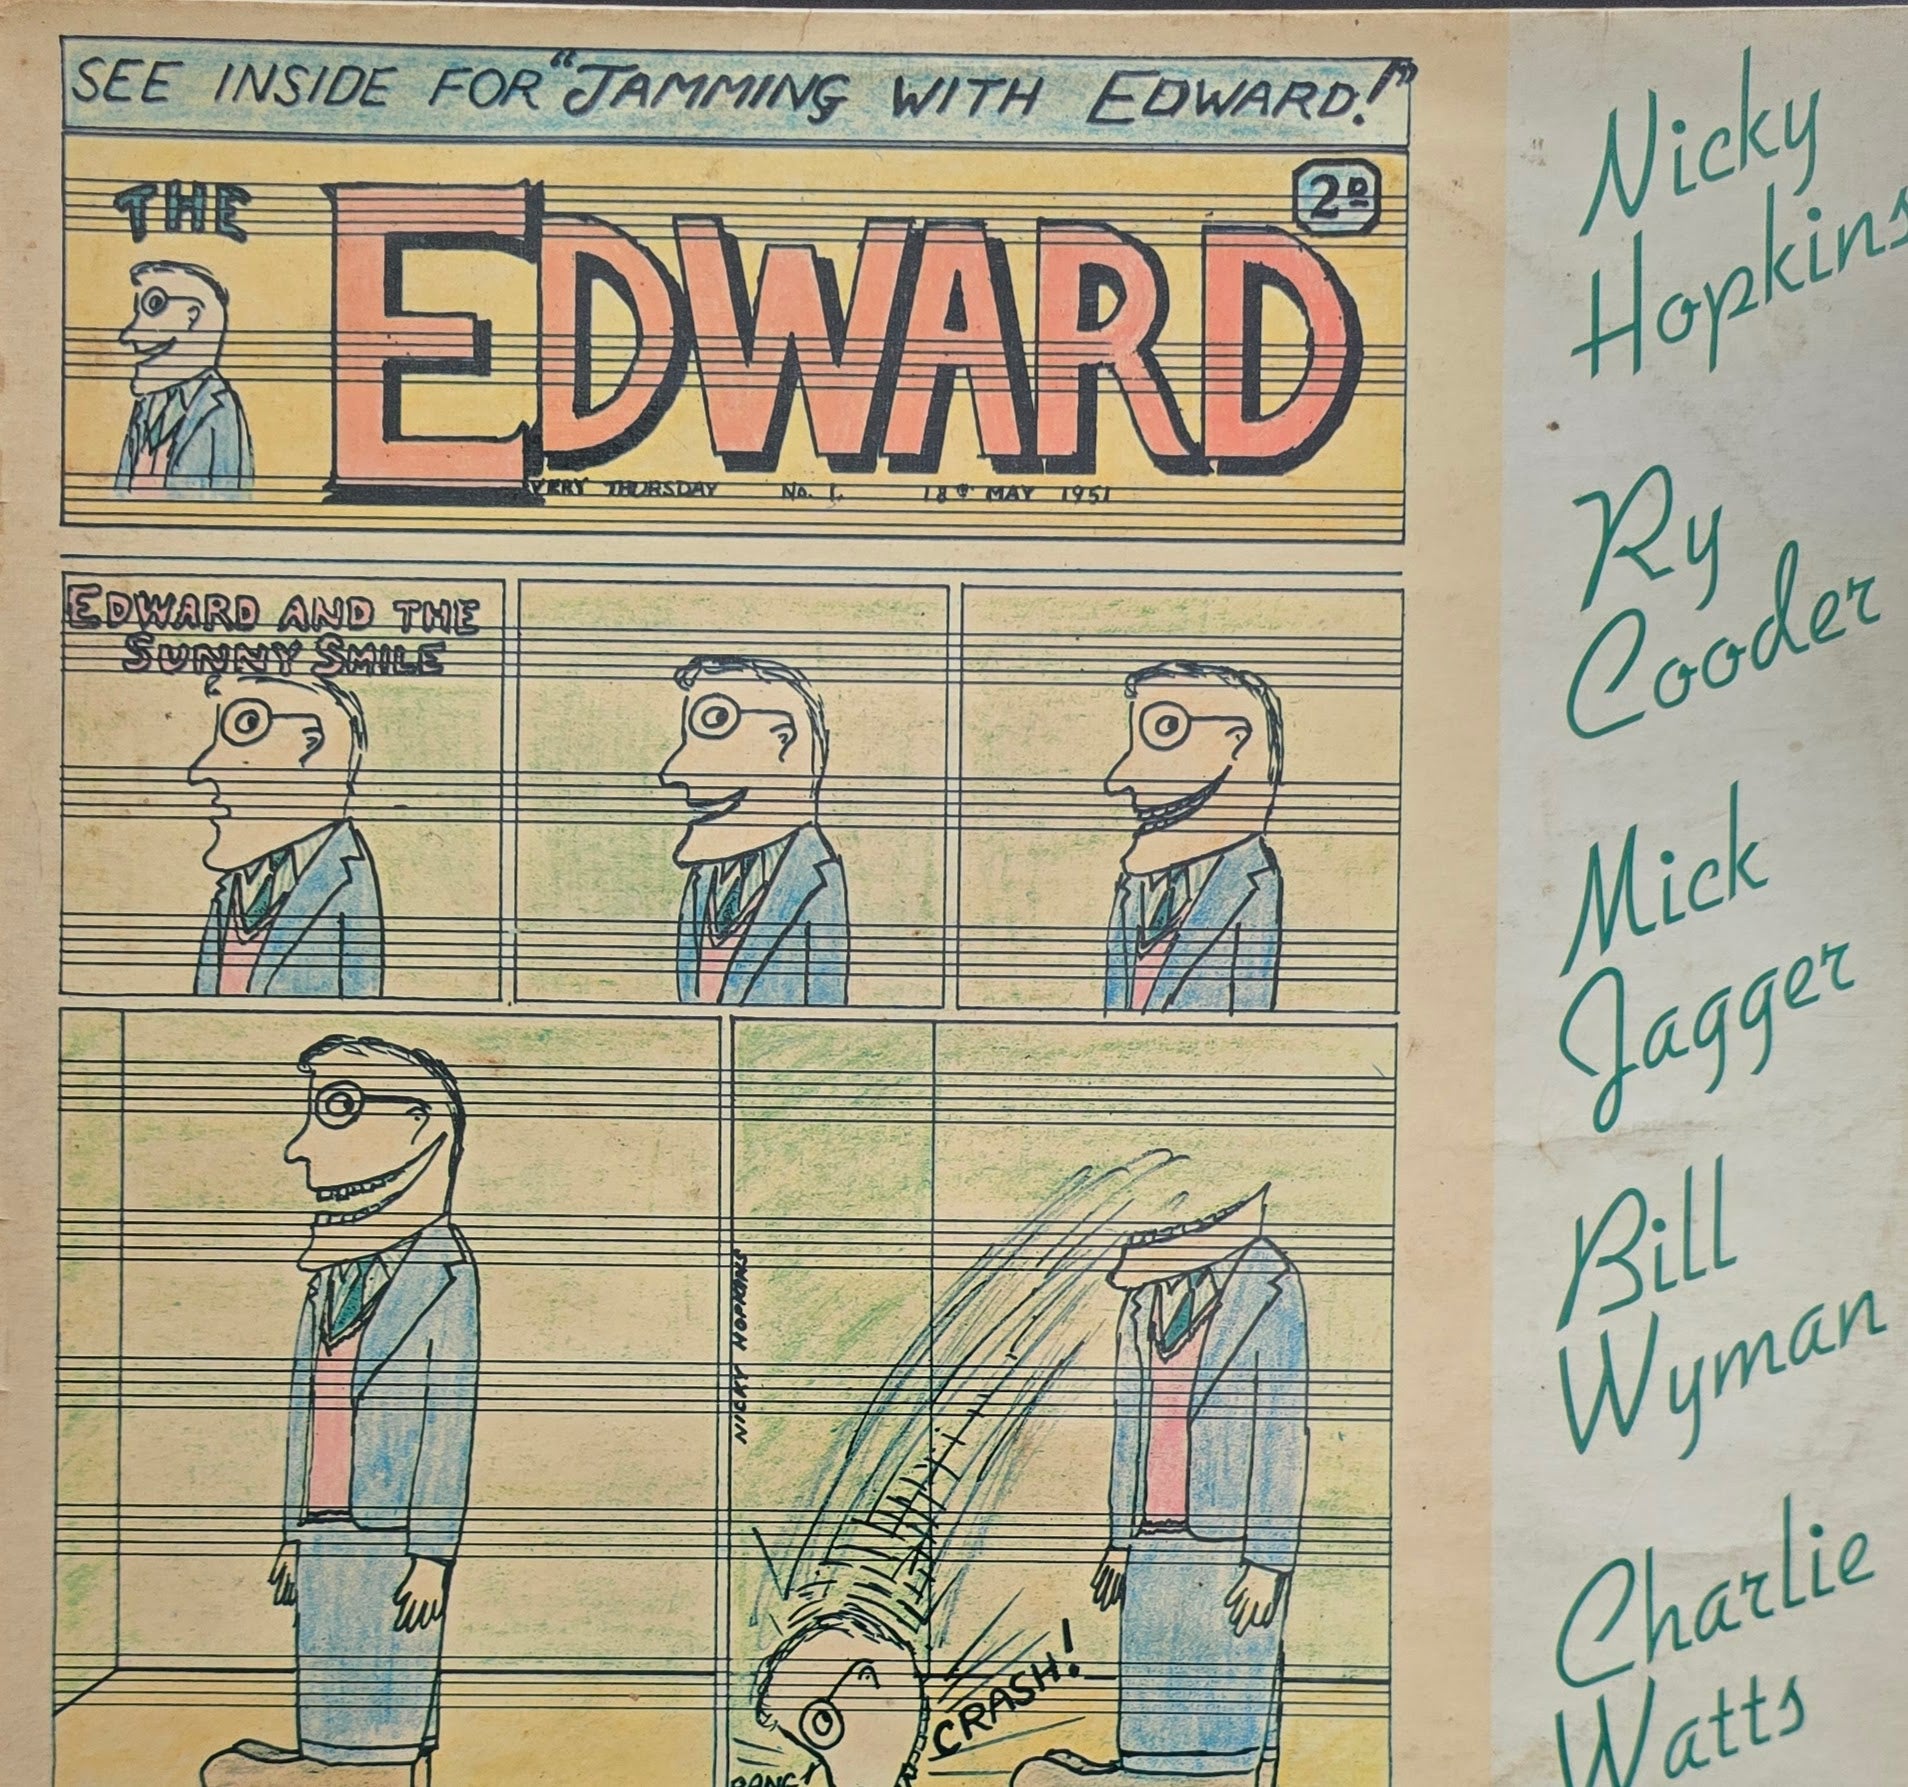 SEE INSIDE FOR "JAMMING WITH EDWARD!"
THE
EDWARD
2D
VERY THURSDAY No. 1. 18TH MAY 1951
EDWARD AND THE
SUNNY SMILE
NICKY HOPKINS
CRASH!
BANG!
Nicky
Hopkins
Ry
Cooder
Mick
Jagger
Bill
Wyman
Charlie
Watts